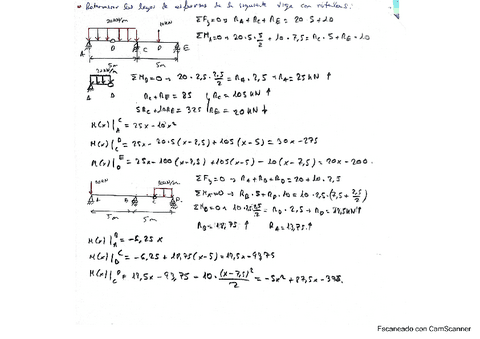 Determinar las leyes de esfuerzos de la siguiente viga con rótulas:
20kN/m 10kN
A B C D E
5m 5m
ΣFy=0 → RA + RC + RE = 20·5+10
ΣMA=0 → 20·5·5/2 + 10·7,5 = RC·5 + RE·10
20kN/m
A B
ΣMB=0 → 20·2,5·2,5/2 = RA·2,5 → RA = 25kN ↑
RC + RE = 85
5RC + 10RE = 325
RC = 105 kN ↑
RE = 20 kN ↓
M(x)|A C = 25x - 10x²
M(x)|C D = 25x - 20·5(x-2,5) + 105(x-5) = 30x - 275
M(x)|D E = 25x - 100(x-2,5) + 105(x-5) - 10(x-7,5) = 20x - 200
10kN/m
A B D
5m 5m
ΣMA=0 → RB·5 + RD·10 = 10·2,5·(7,5 + 2,5/2)
RB = 18,75 ↑
M(x)|A B = -6,25 x
M(x)|B C = -6,25 + 18,75(x-5) = 12,5x - 93,75
M(x)|C D = 12,5x - 93,75 - 10·(x-7,5)²/2 = -5x² + 87,5x - 375
Escaneado con CamScanner